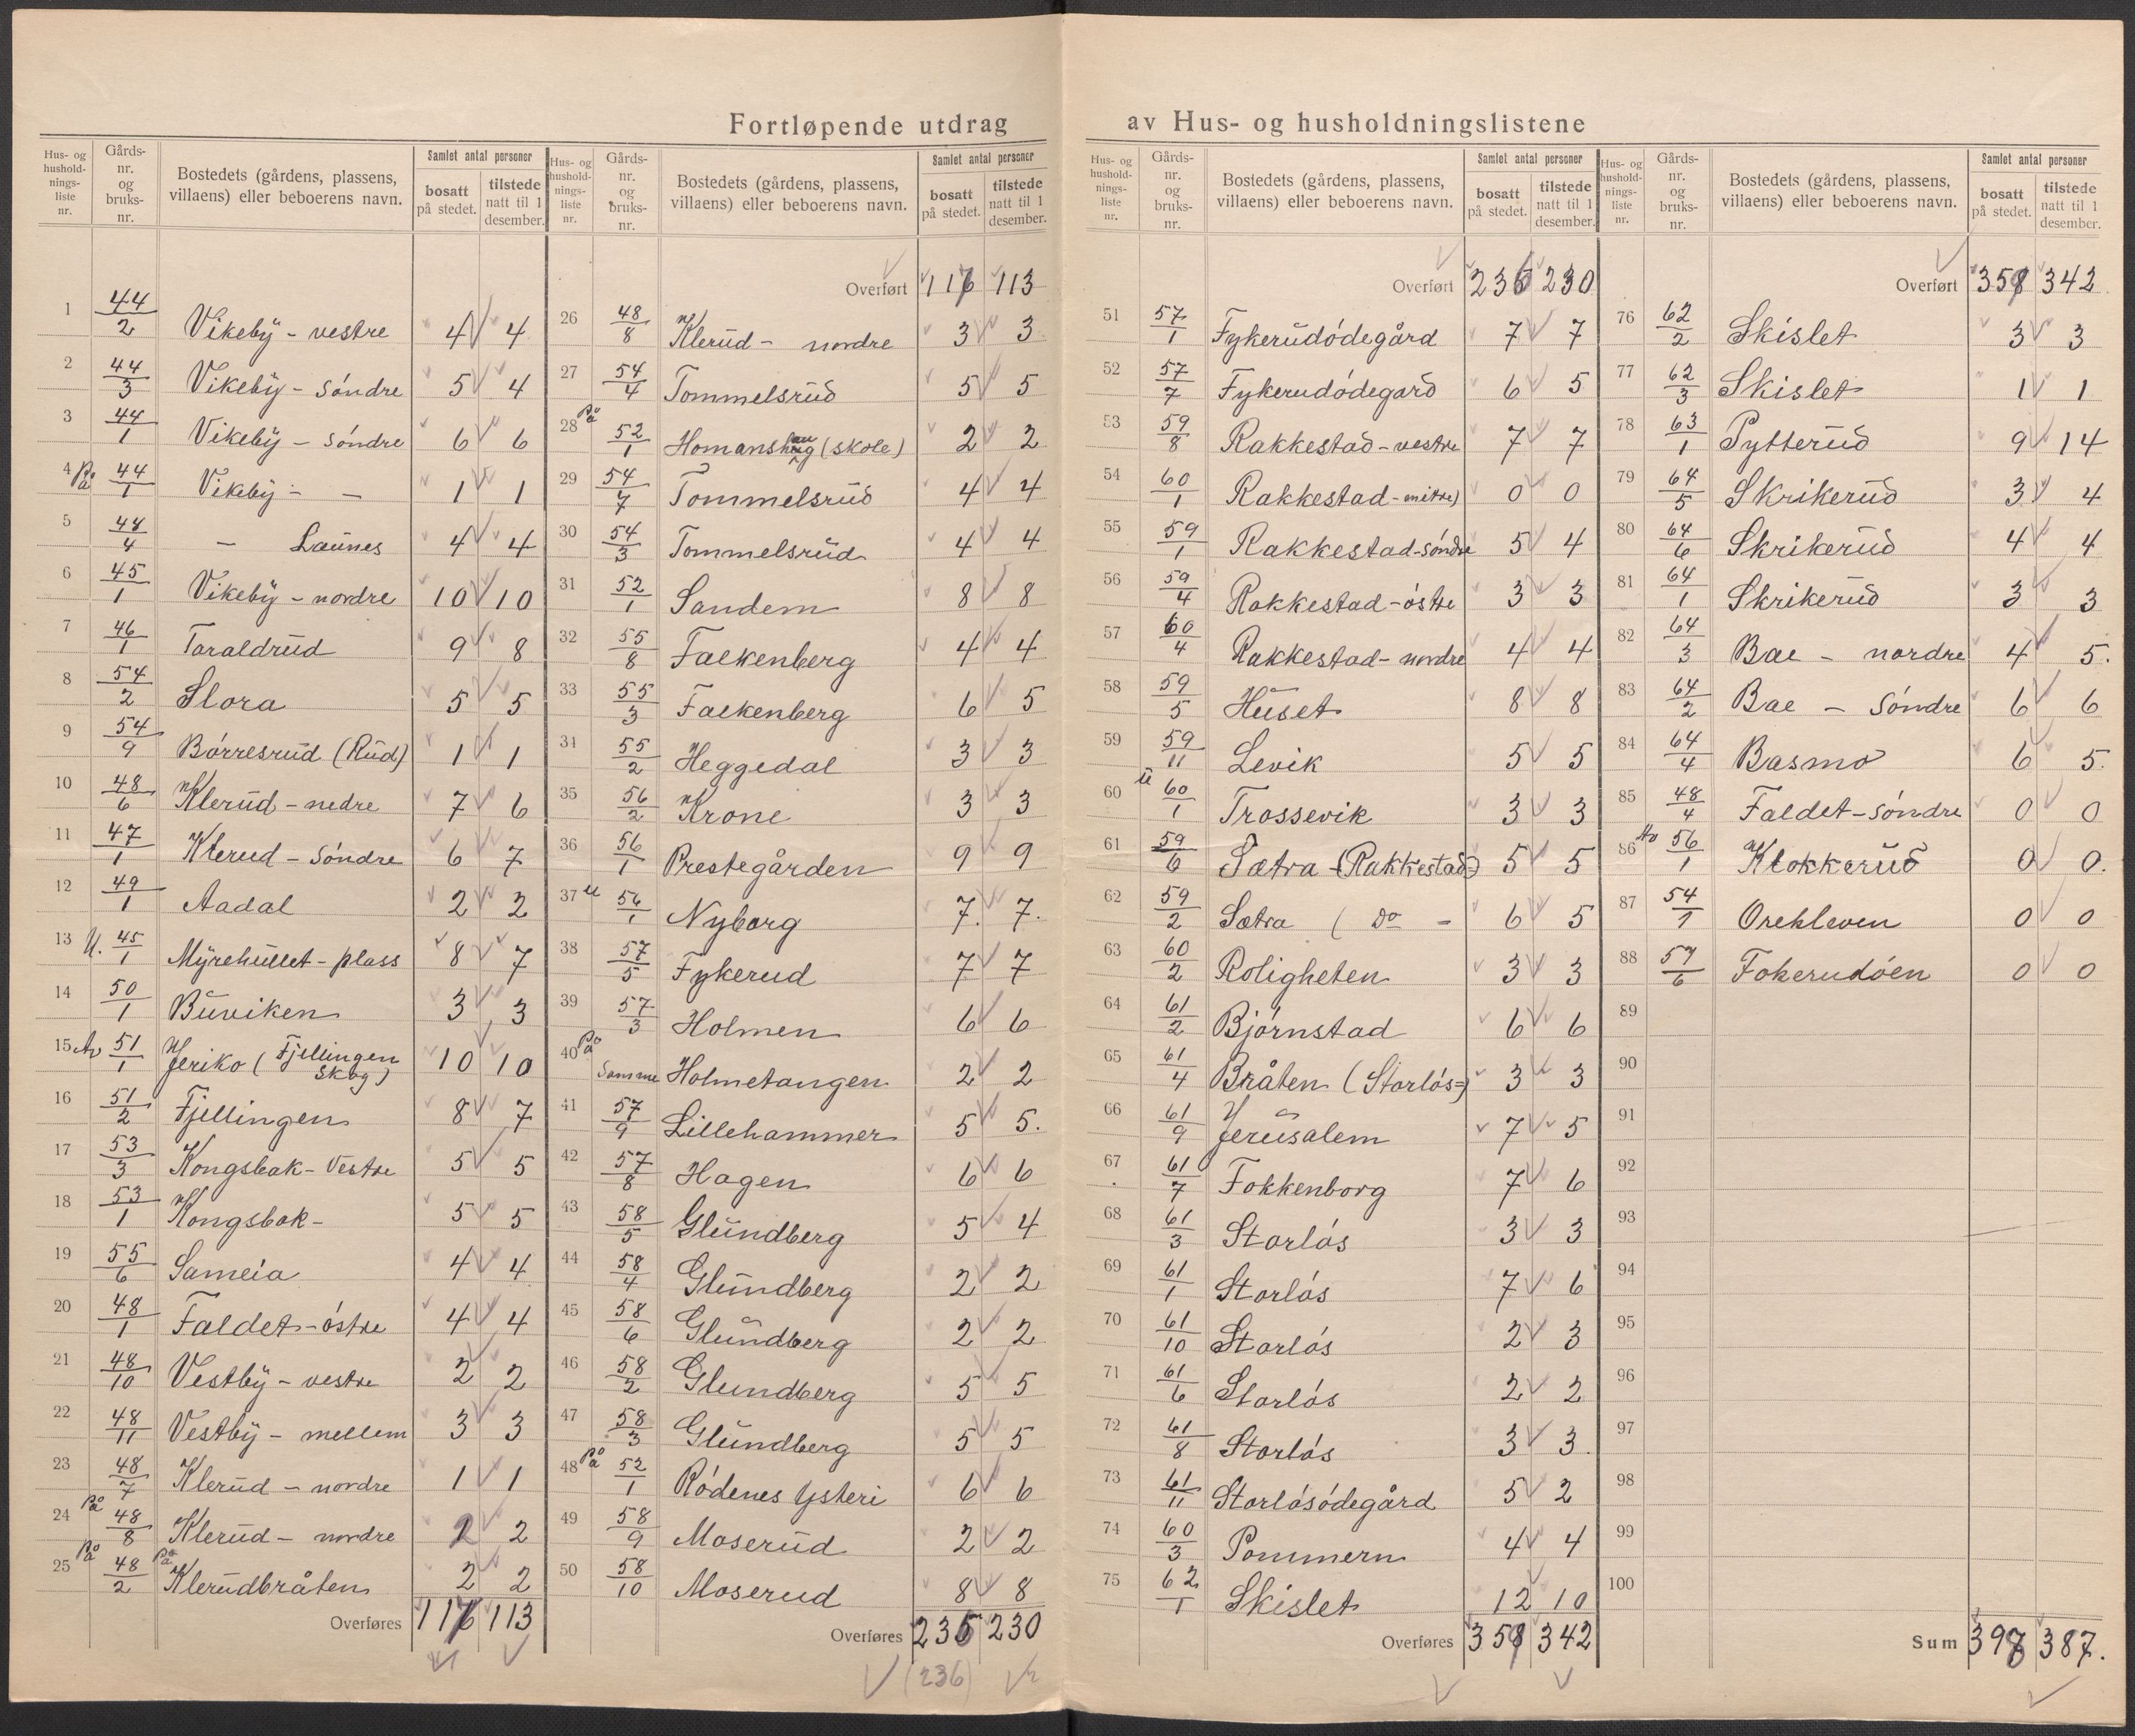 Fortløpende utdrag av Hus- og husholdningslistene
Hus- og hushold-nings-liste nr. | Gårds-nr. og bruks-nr. | Bostedets (gårdens, plassens, villaens) eller beboerens navn. | Samlet antal personer bosatt på stedet. | tilstede natt til 1 desember.
1 44/2 Vikebÿ - vestre 4 4
2 44/3 Vikebÿ - Søndre 5 4
3 44/1 Vikebÿ - søndre 6 6
4 På 44/1 Vikebÿ - - 1 1
5 44/4 - Launes 4 4
6 45/1 Vikebÿ - nordre 10 10
7 46/1 Taraldrud 9 8
8 54/2 Slora 5 5
9 54/9 Børresrud (Rud) 1 1
10 48/6 Klerud - nedre 7 6
11 47/1 Klerud - Søndre 6 7
12 49/1 Aadal 2 2
13 U. 45/1 Mÿrehullet - plass 8 7
14 50/1 Buviken 3 3
15 Av 51/1 Jeriko (Fjellingen skog) 10 10
16 51/2 Fjellingen 8 7
17 53/3 Kongsbak - Vestre 5 5
18 53/1 Kongsbak - 5 5
19 55/6 Sameia 4 4
20 48/1 Faldet - østre 4 4
21 48/10 Vestbÿ - vestre 2 2
22 48/11 Vestbÿ - mellem 3 3
23 48/7 Klerud - nordre 1 1
24 På 48/8 Klerud - nordre 2 2
25 På 48/2 På Klerudbråten 2 2
Overføres 116 113
Hus- og hushold-nings-liste nr. | Gårds-nr. og bruks-nr. | Bostedets (gårdens, plassens, villaens) eller beboerens navn. | Samlet antal personer bosatt på stedet. | tilstede natt til 1 desember.
Overført 116 113
26 48/8 Klerud - nordre 3 3
27 54/4 Tommelsrud 5 5
28 På 52/1 Homanshaug (skole) 2 2
29 54/7 Tommelsrud 4 4
30 54/3 Tommelsrud 4 4
31 52/1 Sandem 8 8
32 55/8 Falkenberg 4 4
33 55/3 Falkenberg 6 5
34 55/2 Heggedal 3 3
35 56/2 Krone 3 3
36 56/1 Prestegården 9 9
37 U 56/1 Nyborg 7 7.
38 57/5 Fykerud 7 7
39 57/3 Holmen 6 6
40 På Samme Holmetangen 2 2
41 57/9 Lillehammer 5 5.
42 57/8 Hagen 6 6
43 58/5 Glundberg 5 4
44 58/4 Glundberg 2 2
45 58/6 Glundberg 2 2
46 58/2 Glundberg 5 5
47 58/3 Glundberg 5 5
48 På 52/1 Rødenes Ysteri 6 6
49 58/9 Moserud 2 2
50 58/10 Moserud 8 8
Overføres 235 230
(236)
Hus- og hushold-nings-liste nr. | Gårds-nr. og bruks-nr. | Bostedets (gårdens, plassens, villaens) eller beboerens navn. | Samlet antal personer bosatt på stedet. | tilstede natt til 1 desember.
Overført 235 230
51 57/1 Fykerudødegård 7 7
52 57/7 Fykerudødegard 6 5
53 59/8 Rakkestad - vestre 7 7
54 60/1 Rakkestad - mitre) 0 0
55 59/1 Rakkestad - søndre 5 4
56 59/4 Rakkestad - østre 3 3
57 60/4 Rakkestad - nordre 4 4
58 59/5 Huset 8 8
59 59/11 Levik 5 5
60 U 60/1 Trossevik 3 3
61 59/6 Sætra (Rakkestad) 5 5
62 59/2 Sætra ( Do - 6 5
63 60/2 Roligheten 3 3
64 61/2 Bjørnstad 6 6
65 61/4 Bråten (Storløs=) 3 3
66 61/9 Jerusalem 7 5
67 61/7 Fokkenborg 7 6
68 61/3 Storløs 3 3
69 61/1 Storløs 7 6
70 61/10 Storløs 2 3
71 61/6 Storløs 2 2
72 61/8 Storløs 3 3
73 61/11 Storløsødegård 5 2
74 60/3 Pommern 4 4
75 62/1 Skislet 12 10
Overføres 358 342
Hus- og hushold-nings-liste nr. | Gårds-nr. og bruks-nr. | Bostedets (gårdens, plassens, villaens) eller beboerens navn. | Samlet antal personer bosatt på stedet. | tilstede natt til 1 desember.
Overført 358 342
76 62/2 Skislet 3 3
77 62/3 Skislet 1 1
78 63/1 Pytterud 9 14
79 64/5 Skrikerud 3 4
80 64/6 Skrikerud 4 4
81 64/1 Skrikerud 3 3
82 64/3 Bae - nordre 4 5.
83 64/2 Bae - Søndre 6 6
84 64/4 Basmo 6 5.
85 48/4 Faldet - søndre 0 0
86 Av 56/1 Klokkerud 0 0.
87 54/1 Orekleven 0 0
88 57/6 Fokerudøen 0 0
89
90
91
92
93
94
95
96
97
98
99
100
Sum 398 387.